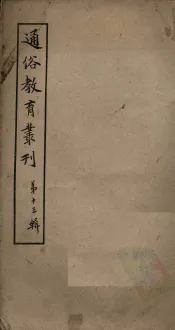 通俗教育叢刊
第十三輯